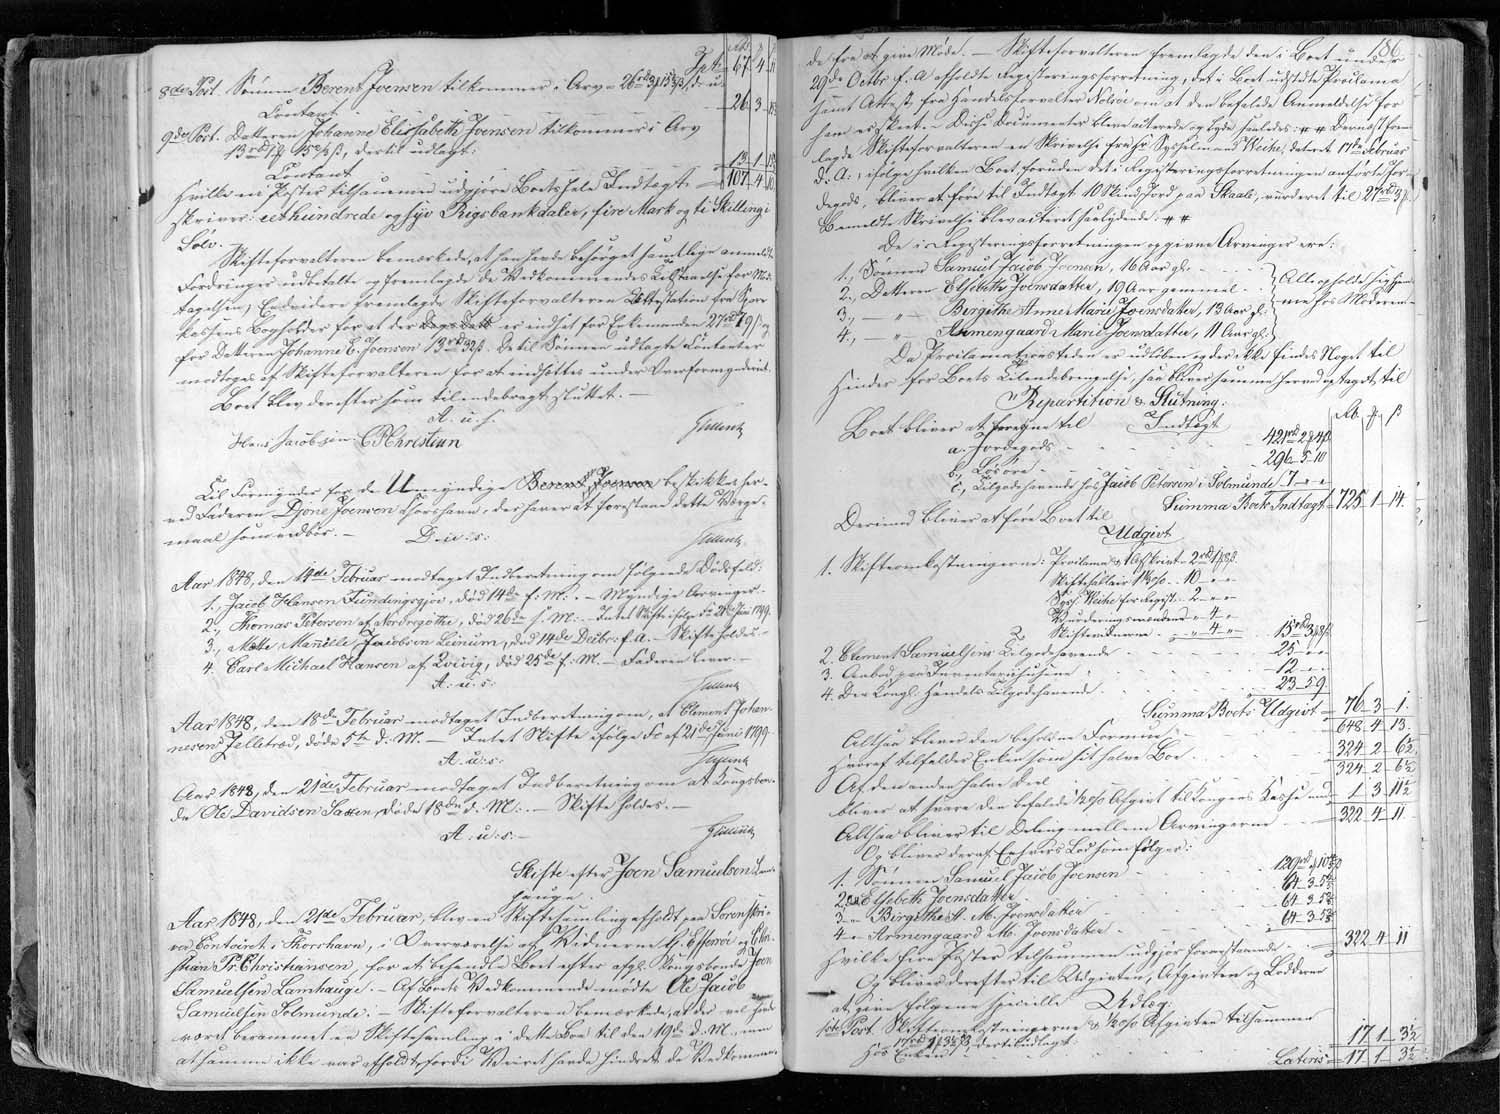 Rbd. ß
Tpt. 67 4 11
8de Post. Sønnen Berent Joensen tilkommer i Arv 26 rd 3 ß, d. u.
Contant 26 3
9de Post. Datteren Johanne Elisabeth Joensen tilkommer i Arv
13 rd 1 15 ß, dertil udlagt:
Contant 13 1
Hvilke ni Poster tilsammen udgjøre Boets hele Indtægt 107 4 10
skriver: eet hundrede og syv Rigsbankdaler, fire Mark og ti Skilling i
Sølv.
Skifteforvalteren bemærkede, at han havde besørget samtlige anmeldte
Fordringer udbetalte og fremlagde de Vedkommendes Tilstaaelse for Mod-
tagelsen, Endvidere fremlagde Skifteforvalteren Attestation fra Spare-
kassens Bogholder for at der er indsat for Enkemanden 27 rd 79 ß og
for Datteren Johanne E. Joensen 13 rd ß. De til Sønnen udlagte Contanter
modtoges af Skifteforvalteren for at indsættes under Overformynderiet.
Boet blev derefter som tilendebragt sluttet. —
A. u. s.
Hans Jacobsen C P Christian
Til Formynder for de Umyndige Berent Joensen beskikkes her-
ved Faderen Djone Joensen Thorshavn, der haver at forestaae dette Værge-
maal som vedbør. — D. u. s:
Aar 1848, den 14de Februar modtaget Indberetning om følgende Dødsfald:
1., Jacob Hansen Fundingsgjov, død 14de f. M. — Myndige Arvinger.
2., Thomas Petersen af Nordregøthe, død 26de f. M. — Intet Skifte ifølge Fo 21de Juni 1799.
3., Mette Jacobsen, død 14de Decbr. f. A. — Skifte holdes. —
4. Carl Michael Hansen af Qvivig, død 25de f. M. — Faderen lever. —
A. u. s:
Aar 1848, den 18de Februar modtaget Indberetning om, at Clement Johan-
nesens, døde 5te d. M. — Intet Skifte ifølge Fo af 21de Juni 1799
A. u. s:
Aar 1848, den 21de Februar modtaget Indberetning om at Kongsbon-
de Ole Davidsen, døde 18de d. M: — Skifte holdes. —
A. u. s:
Skifte efter Joen Samuelsen Lam-
hauge.
Aar 1848, den 21de Februar, blev en Skiftesamling afholdt paa Sorenskri-
ver Contoiret i Thorshavn, i Overværelse af Vidnerne H. Effersøe og Chri-
stian Pr. Christiansen, for at behandle Boet efter afgl. Kongsbonde Joen
Samuelsen Lamhauge. — Af Boets Vedkommende mødte Ole Jacob
Samuelsen Solmunde. — Skifteforvalteren bemærkede, at der vel havde
været berammet en Skiftesamling i dette Boe til den 19de d. M., men
at samme ikke var afholdt, fordi Veiret havde hindret de Vedkommen-
186
de fra at give Møde. — Skifteforvalteren fremlagde den i Boet under
29de Octbr. f. A. afholdte Registreringsforretning, det i Boet udstedte Proclama
samt Attest fra Handelsforvalter Nolsøe om at den befalede Anmeldelse for
ham er skeet. — Disse Documenter bleve acterede og lyde saaledes: Dernæst frem-
lagde Skifteforvalteren en Skrivelse fra Hr Sysselmand Weihe, dateret 17de Februar
d. A., ifølge hvilken Boet, foruden det i Registreringsforretningen anførte Jor-
degods, bliver at føre til Indtægt 10 Skind Jord, paa Skaale, vurderet til 27 rd 3
Bemeldte Skrivelse blev acteret saalydende:
De i Registreringsforretningen opgivne Arvinger ere:
1., Sønnen Samuel Jacob Joensen, 16 Aar gl.
2., Datteren Elsebeth Joensdatter, 19 Aar gammel
3., — " — Birgithe Anne Marie Joensdatter, 13 Aar gl.
4., — " — Armengaard Marie Joensdatter, 11 Aar gl.
Alle opholde sig hjem-
me hos Moderen —
Da Proclamationstiden er udløben og der ikke findes Noget til
Hinder for Boets Tilendebringelse, saa bliver samme herved optaget til
Repartition & Slutning.
Boet bliver at beregne til Indtægt Rb. ß
a. Jordegods 421 rd 2 4 ß
b., Løsøre 296 5 10
c., Tilgodehavende hos Jacob Petersen i Solmunde 7 " "
Summa Boets Indtægt 725 1 14.
Derimod bliver at føre Boet til
Udgivt
1. Skifteomkostningerne: Proclama & Afskrivt 2 rd 1 8 ß
Skiftesallair 10 " "
Syss. Weihe for Regist. 2 " "
Vurderingsmændene " 4 "
2 Skiftevidnerne " 4 " 15 rd 3 8 ß
2. Clement Samuelsens Tilgodehavende 25 " "
3. Aabod paa Inventariihusene 12 " "
4. Den Kongl. Handels Tilgodehavende 23 5 9
Summa Boets Udgivt 76 3 1.
Altsaa bliver den beholdne Formue 648 4 13.
Hvoraf tilfalder Enken som sit halve Boe 324 2 6½
Af den anden halve Deel 324 2 6½
bliver at svare den befalede ½ % Afgivt til Kongens Kasse med 1 3 11½
Altsaa bliver til Deling mellem Arvingerne 322 4 11
Og bliver deraf Enhvers Lod som følger:
1. Sønnen Samuel Jacob Joensen 129 rd
2. Elsebeth Joensdatter 64 3 5
3 " Birgithe A. M. Joensdatter 64 3 5
4 " Armengaard M. Joensdatter 64 3 5
Hvilke fire Poster tilsammen udgjør forestaaende 322 4 11
Og bliver derefter til Udgivten, Afgivten og Lodderne
at give følgende specielle Udlæg:
1ste Post. Skifteomkostningerne & ½ % Afgivten tilsammen
17 rd 1 3½ ß, dertil udlagt
Hos Enken 17 1 3½
Lateris 17 1 3½